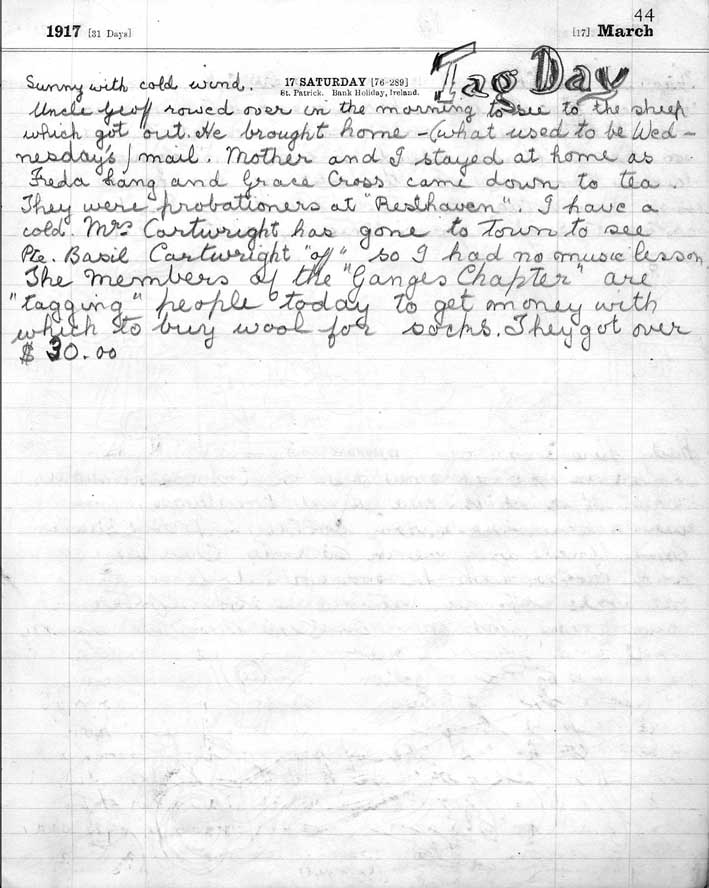 44
1917 [31 Days] [17] March
17 SATURDAY [76-289]
St. Patrick. Bank Holiday, Ireland.
Tag Day
Sunny with cold wind.
Uncle Geoff rowed over in the morning to see to the sheep
which got out. He brought home - (what used to be Wed -
nesday's) mail. Mother and I stayed at home as
Freda Lang and Grace Cross came down to tea.
They were probationers at "Resthaven". I have a
cold. Mrs Cartwright has gone to town to see
Pte. Basil Cartwright "off" so I had no music lesson.
The members of the "Ganges Chapter" are
"tagging" people today to get money with
which to buy wool for socks. They got over
$ 30.00